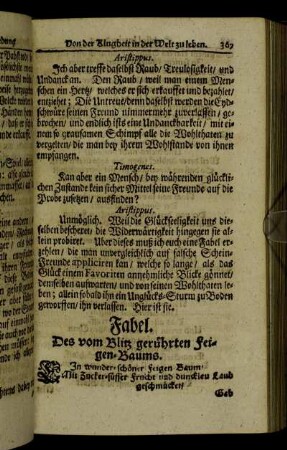 Von der Klugheit in der Welt zu leben. 367
Aristippus.
Ich aber treffe daselbst Raub/ Treulosigkeit/ und
Undanck an. Den Raub/ weil man einem Men-
schen ein Hertz/ welches er sich erkaufft und bezahlet/
entziehet; Die Untreue/ denn daselbst werden die Eyd-
schwüre seinen Freund nimmermehr zuverlassen/ ge-
brochen/ und endlich ists eine Undanckbarkeit/ mit ei-
nem so grausamen Schimpf alle die Wohlthaten zu
vergelten/ die man bey ihrem Wohlstande von ihnen
empfangen.
Timogenes.
Kan aber ein Mensch/ bey währenden glückli-
chen Zustande kein sicher Mittel seine Freunde auf die
Probe zusetzen/ ausfinden?
Aristippus.
Unmöglich. Weil die Glückseligkeit uns die-
selben bescheret/ die Widerwärtigkeit hingegen sie al-
lein probiret. Uber dieses muß ich euch eine Fabel er-
zehlen/ die man unvergleichlich auf falsche Schein-
Freunde appliciren kan/ welche so lange/ als das
Glück einem Favoriten annehmliche Blicke gönnet/
demselben aufwarten/ und von seinen Wohlthaten le-
ben; allein sobald ihn ein Unglücks-Sturm zu Boden
geworffen/ ihn verlassen. Hier ist sie.
Fabel.
Des vom Blitz gerührten Fei-
gen-Baums.
Ein wunder-schöner Feigen Baum/
Mit Zocker-süsser Frucht und duncklen Laub
geschmücket/
Gab